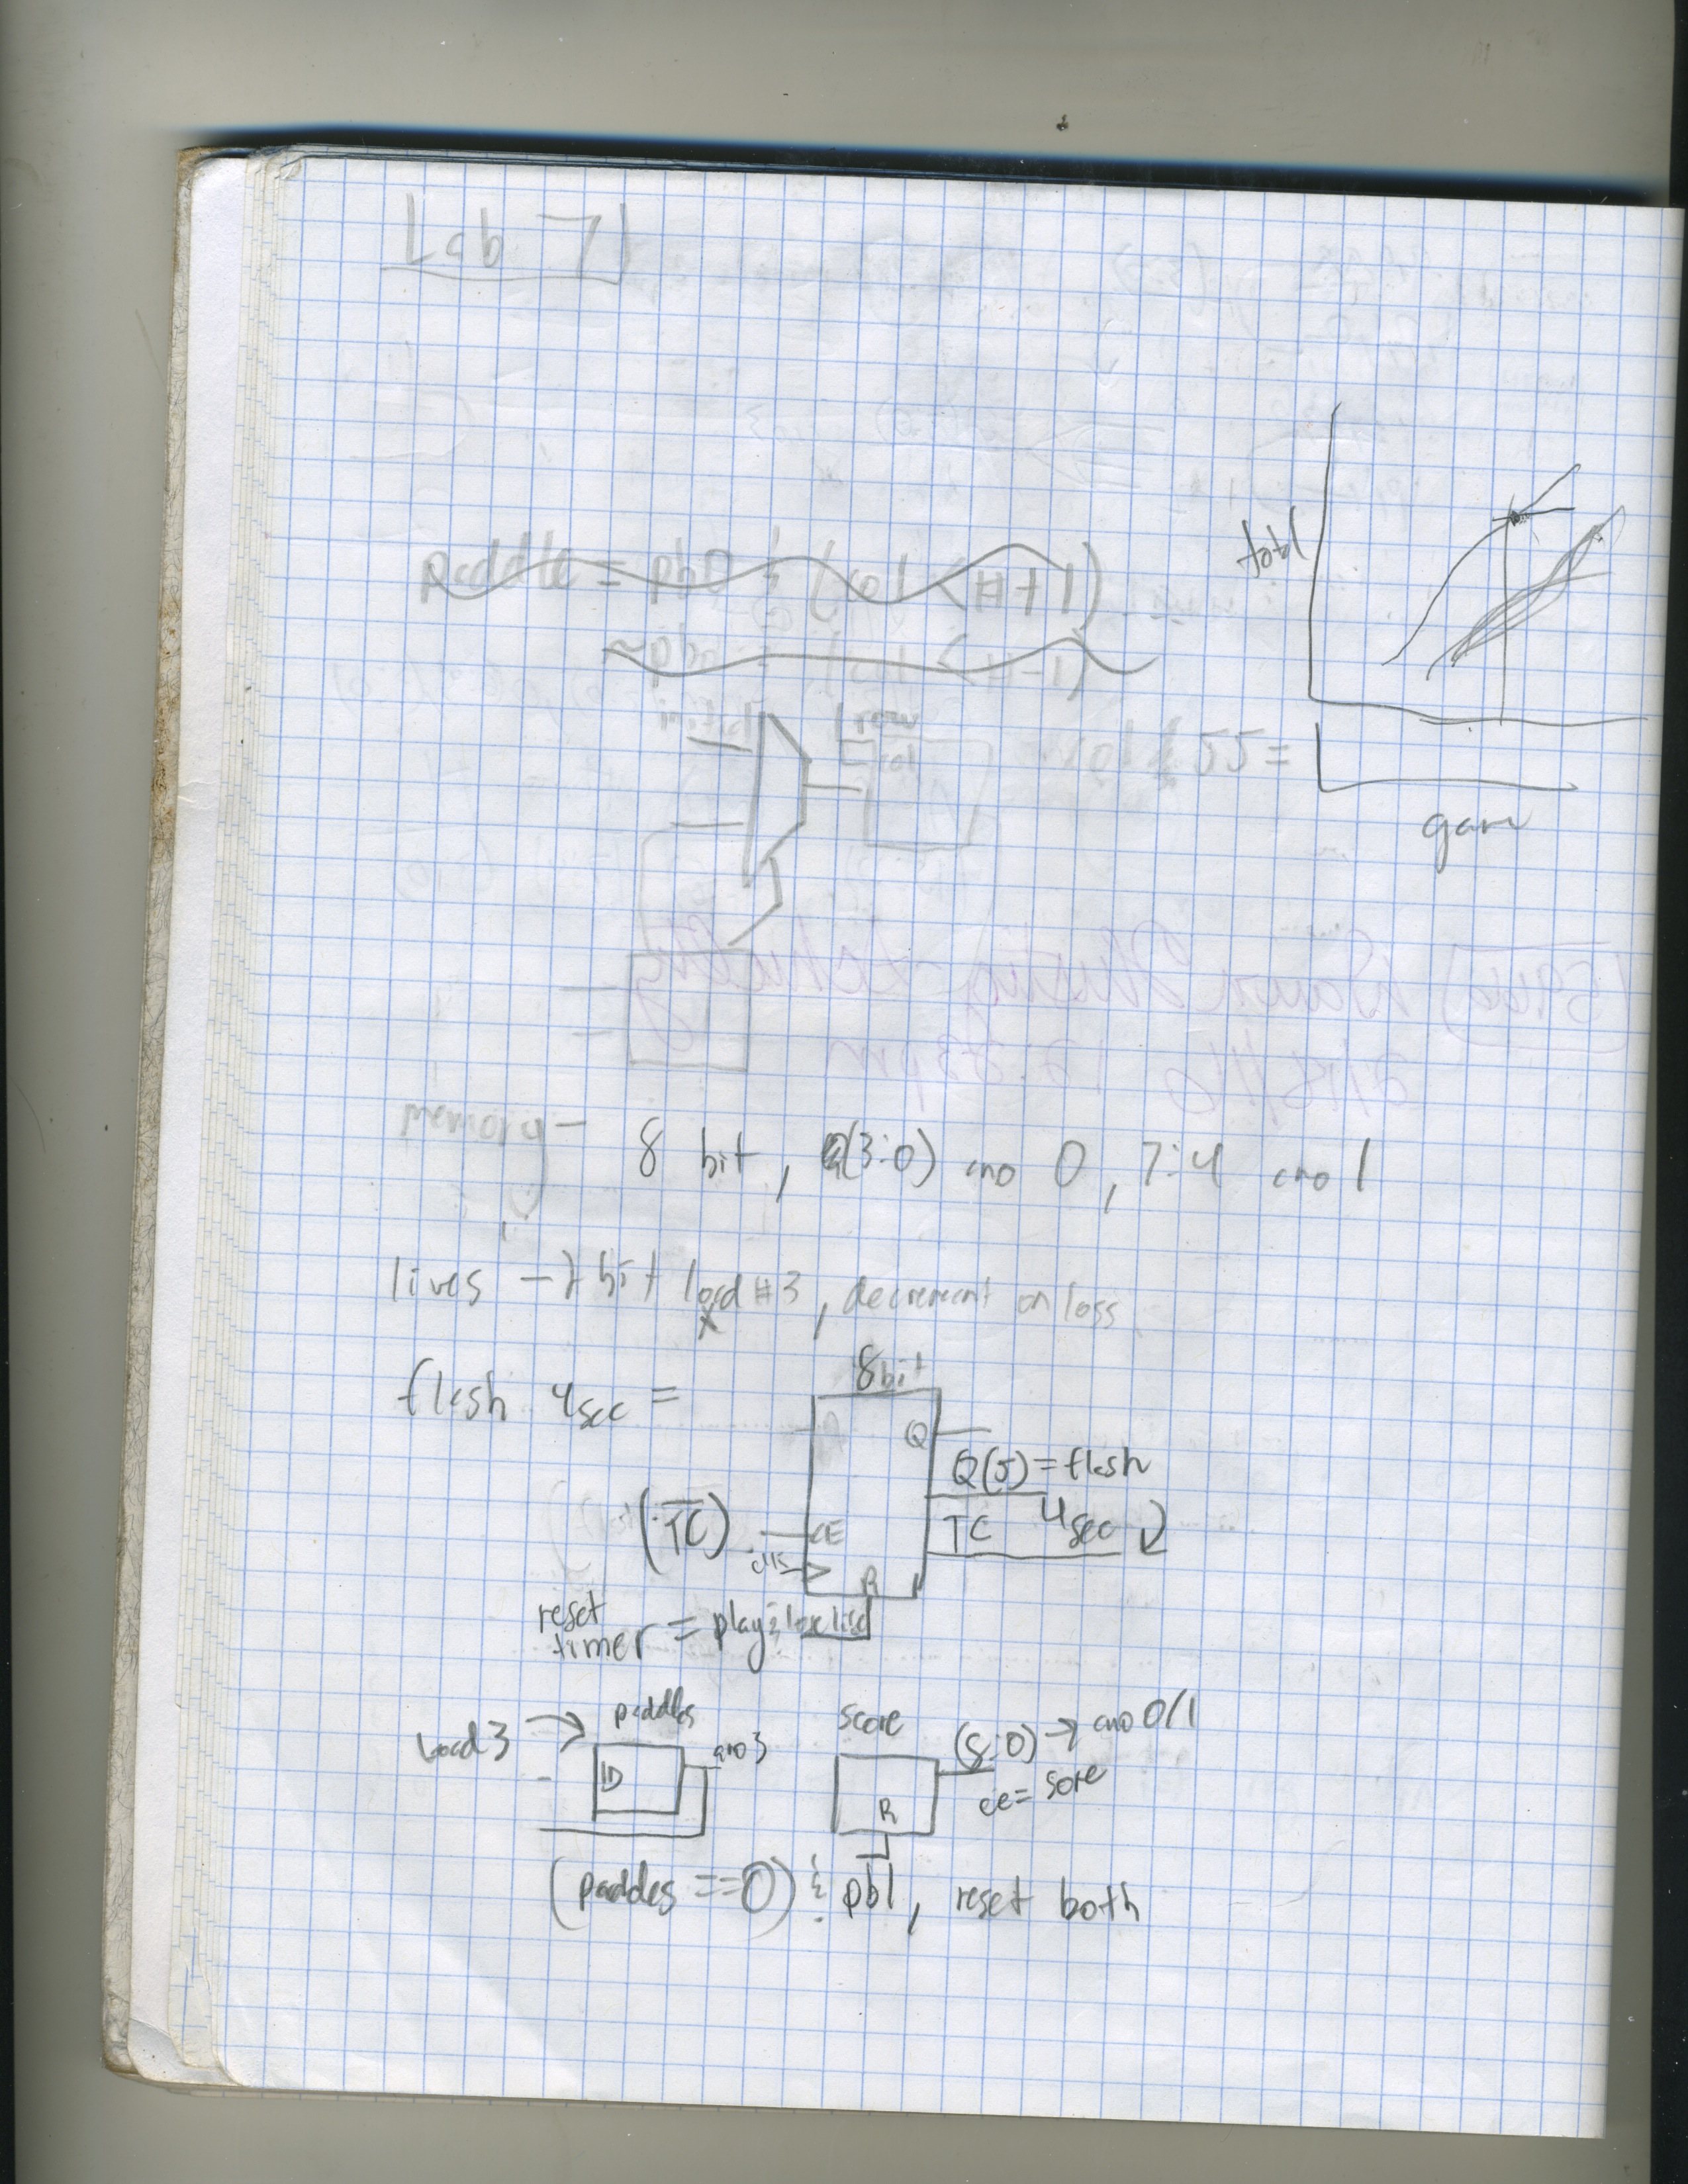 Lab 7
total
paddle = pb0 & (col > H+1)
~pb0 & (col > H-1)
initial
row
col
game
memory - 8 bit, Q(3:0) ano 0, 7:4 ano 1
lives → bit load #3, decrement on loss
flash 4sec =
8bit
Q
Q(5) = flash
(TC)
CE
TC 4sec
clk
R
reset
timer = play &
load 3
paddles
D
ano3
score
R
→ ano 0/1
ce = sore
(paddes == 0) & pb1, reset both